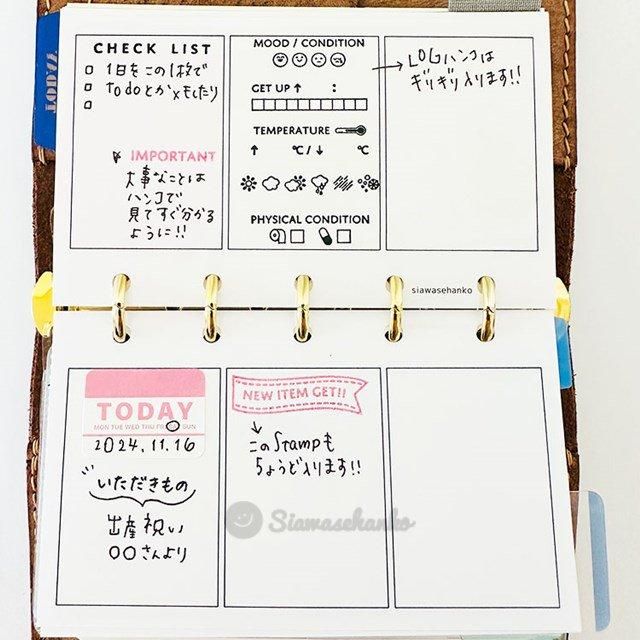 TODAY
CHECK LIST
1日をこの1枚で
todoとか×モしたり
IMPORTANT
大事なことは
ハンコで
見てすぐ分かる
ように!!
MOOD / CONDITION
GET UP ↑ :
TEMPERATURE
↑ ℃/↓ ℃
PHYSICAL CONDITION
→LOGハンコは
ギリギリ入ります!!
siawasehanko
TODAY
MON TUE WED THU FRI SUN
2024.11.16
いただきもの
出産祝い
〇〇さんより
NEW ITEM GET!!
↓
このStampも
ちょうど入ります!!
Siawasehanko